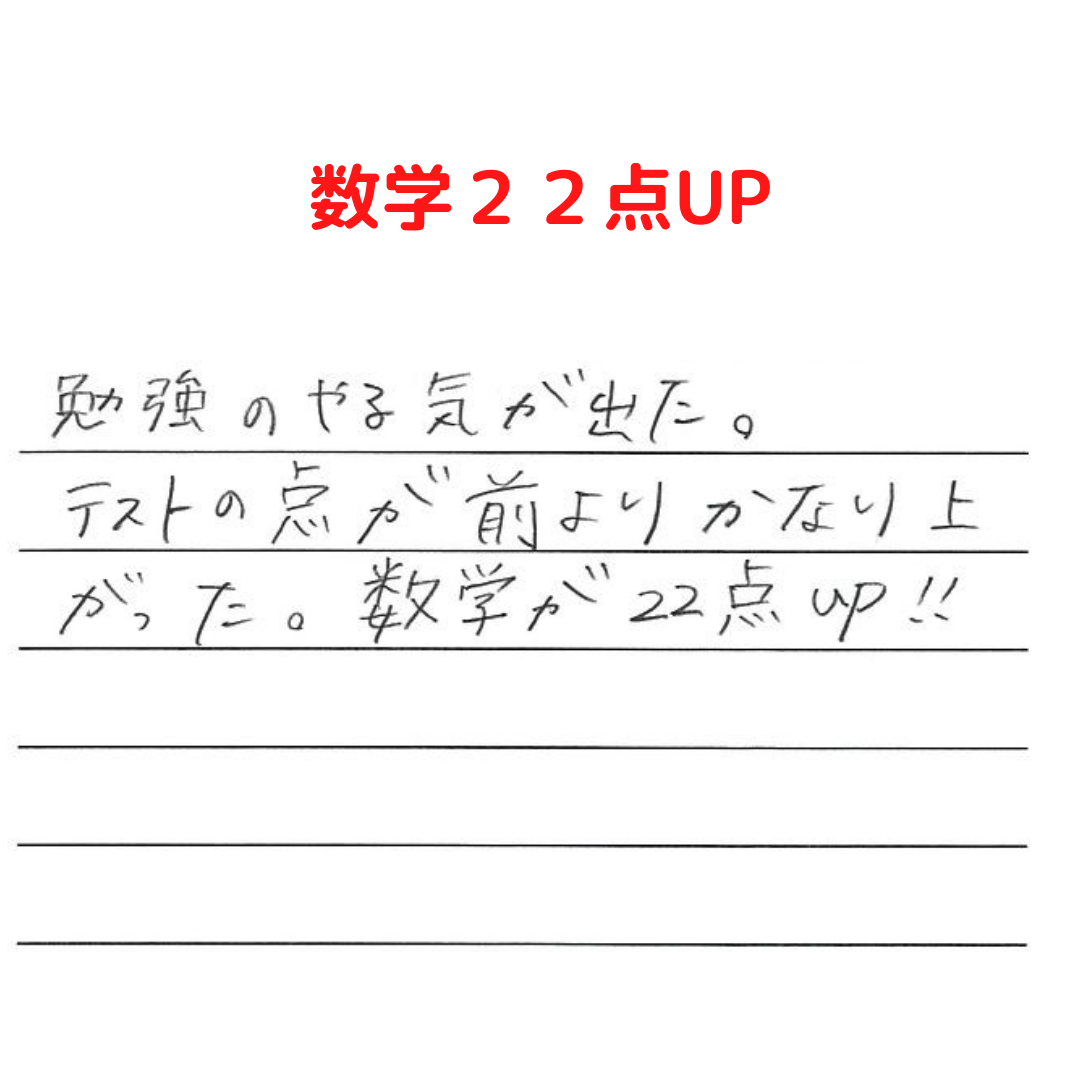 数学２２点UP
勉強のやる気が出た。
テストの点が前よりかなり上
がった。数学が22点up!!